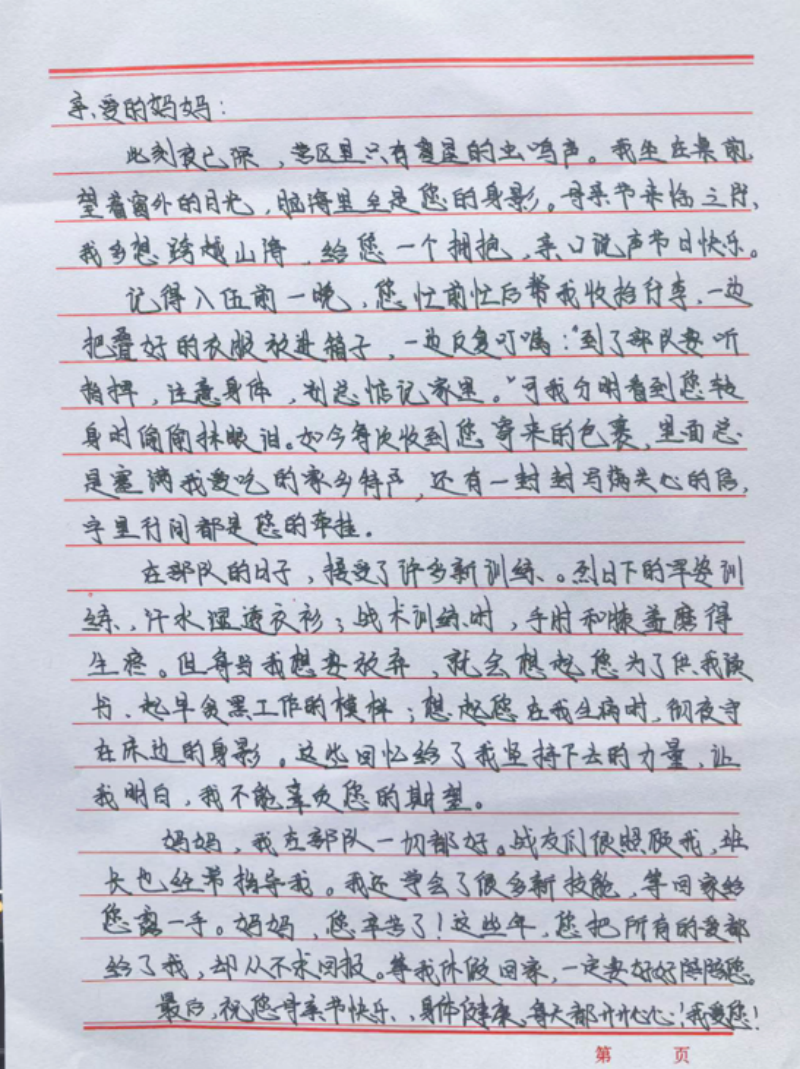 亲爱的妈妈：
此刻夜已深，营区里只有窗里的虫鸣声。我坐在桌前，
望着窗外的月光，脑海里全是您的身影。母亲节来临之际，
我多想跨越山海，给您一个拥抱，亲口说声节日快乐。
记得入伍前一晚，您忙前忙后帮我收拾行李，一边
把叠好的衣服放进箱子，一边反复叮嘱："到了部队要听
指挥，注意身体，别总惦记家里。"可我分明看到您转
身时偷偷抹眼泪。如今每次收到您寄来的包裹，里面总
是塞满我爱吃的家乡特产，还有一封封写满关心的信，
字里行间都是您的牵挂。
在部队的日子，接受了许多新训练。烈日下的军姿训
练，汗水湿透衣衫；战术训练时，手肘和膝盖磨得
生疼。但每当我想要放弃，就会想起您为了供我读
书、起早贪黑工作的模样；想起您在我生病时，彻夜守
在床边的身影。这些回忆给了我坚持下去的力量，让
我明白，我不能辜负您的期望。
妈妈，我在部队一切都好。战友们很照顾我，班
长也经常指导我。我还学会了很多新技能，等回家给
您露一手。妈妈，您辛苦了！这些年，您把所有的爱都
给了我，却从不求回报。等我休假回家，一定要好好陪陪您。
最后，祝您母亲节快乐、身体健康、每天都开开心心！我爱您！
第 页